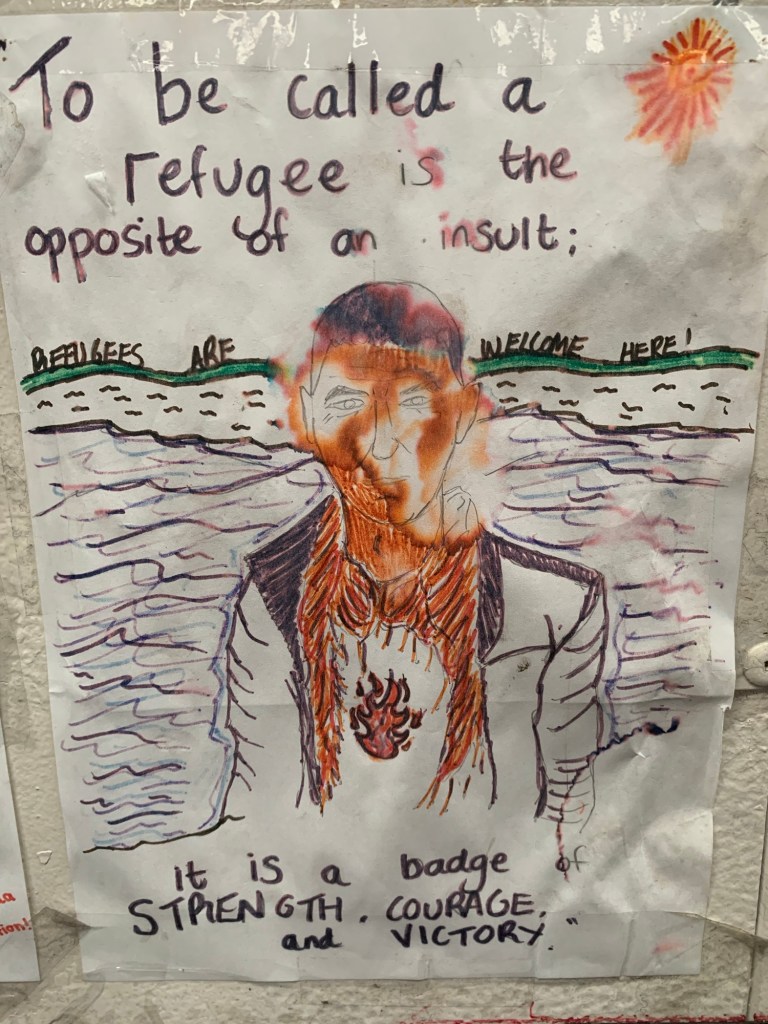 To be called a
refugee is the
opposite of an insult;
REFUGEES ARE WELCOME HERE!
it is a badge of
STRENGTH, COURAGE,
and VICTORY."